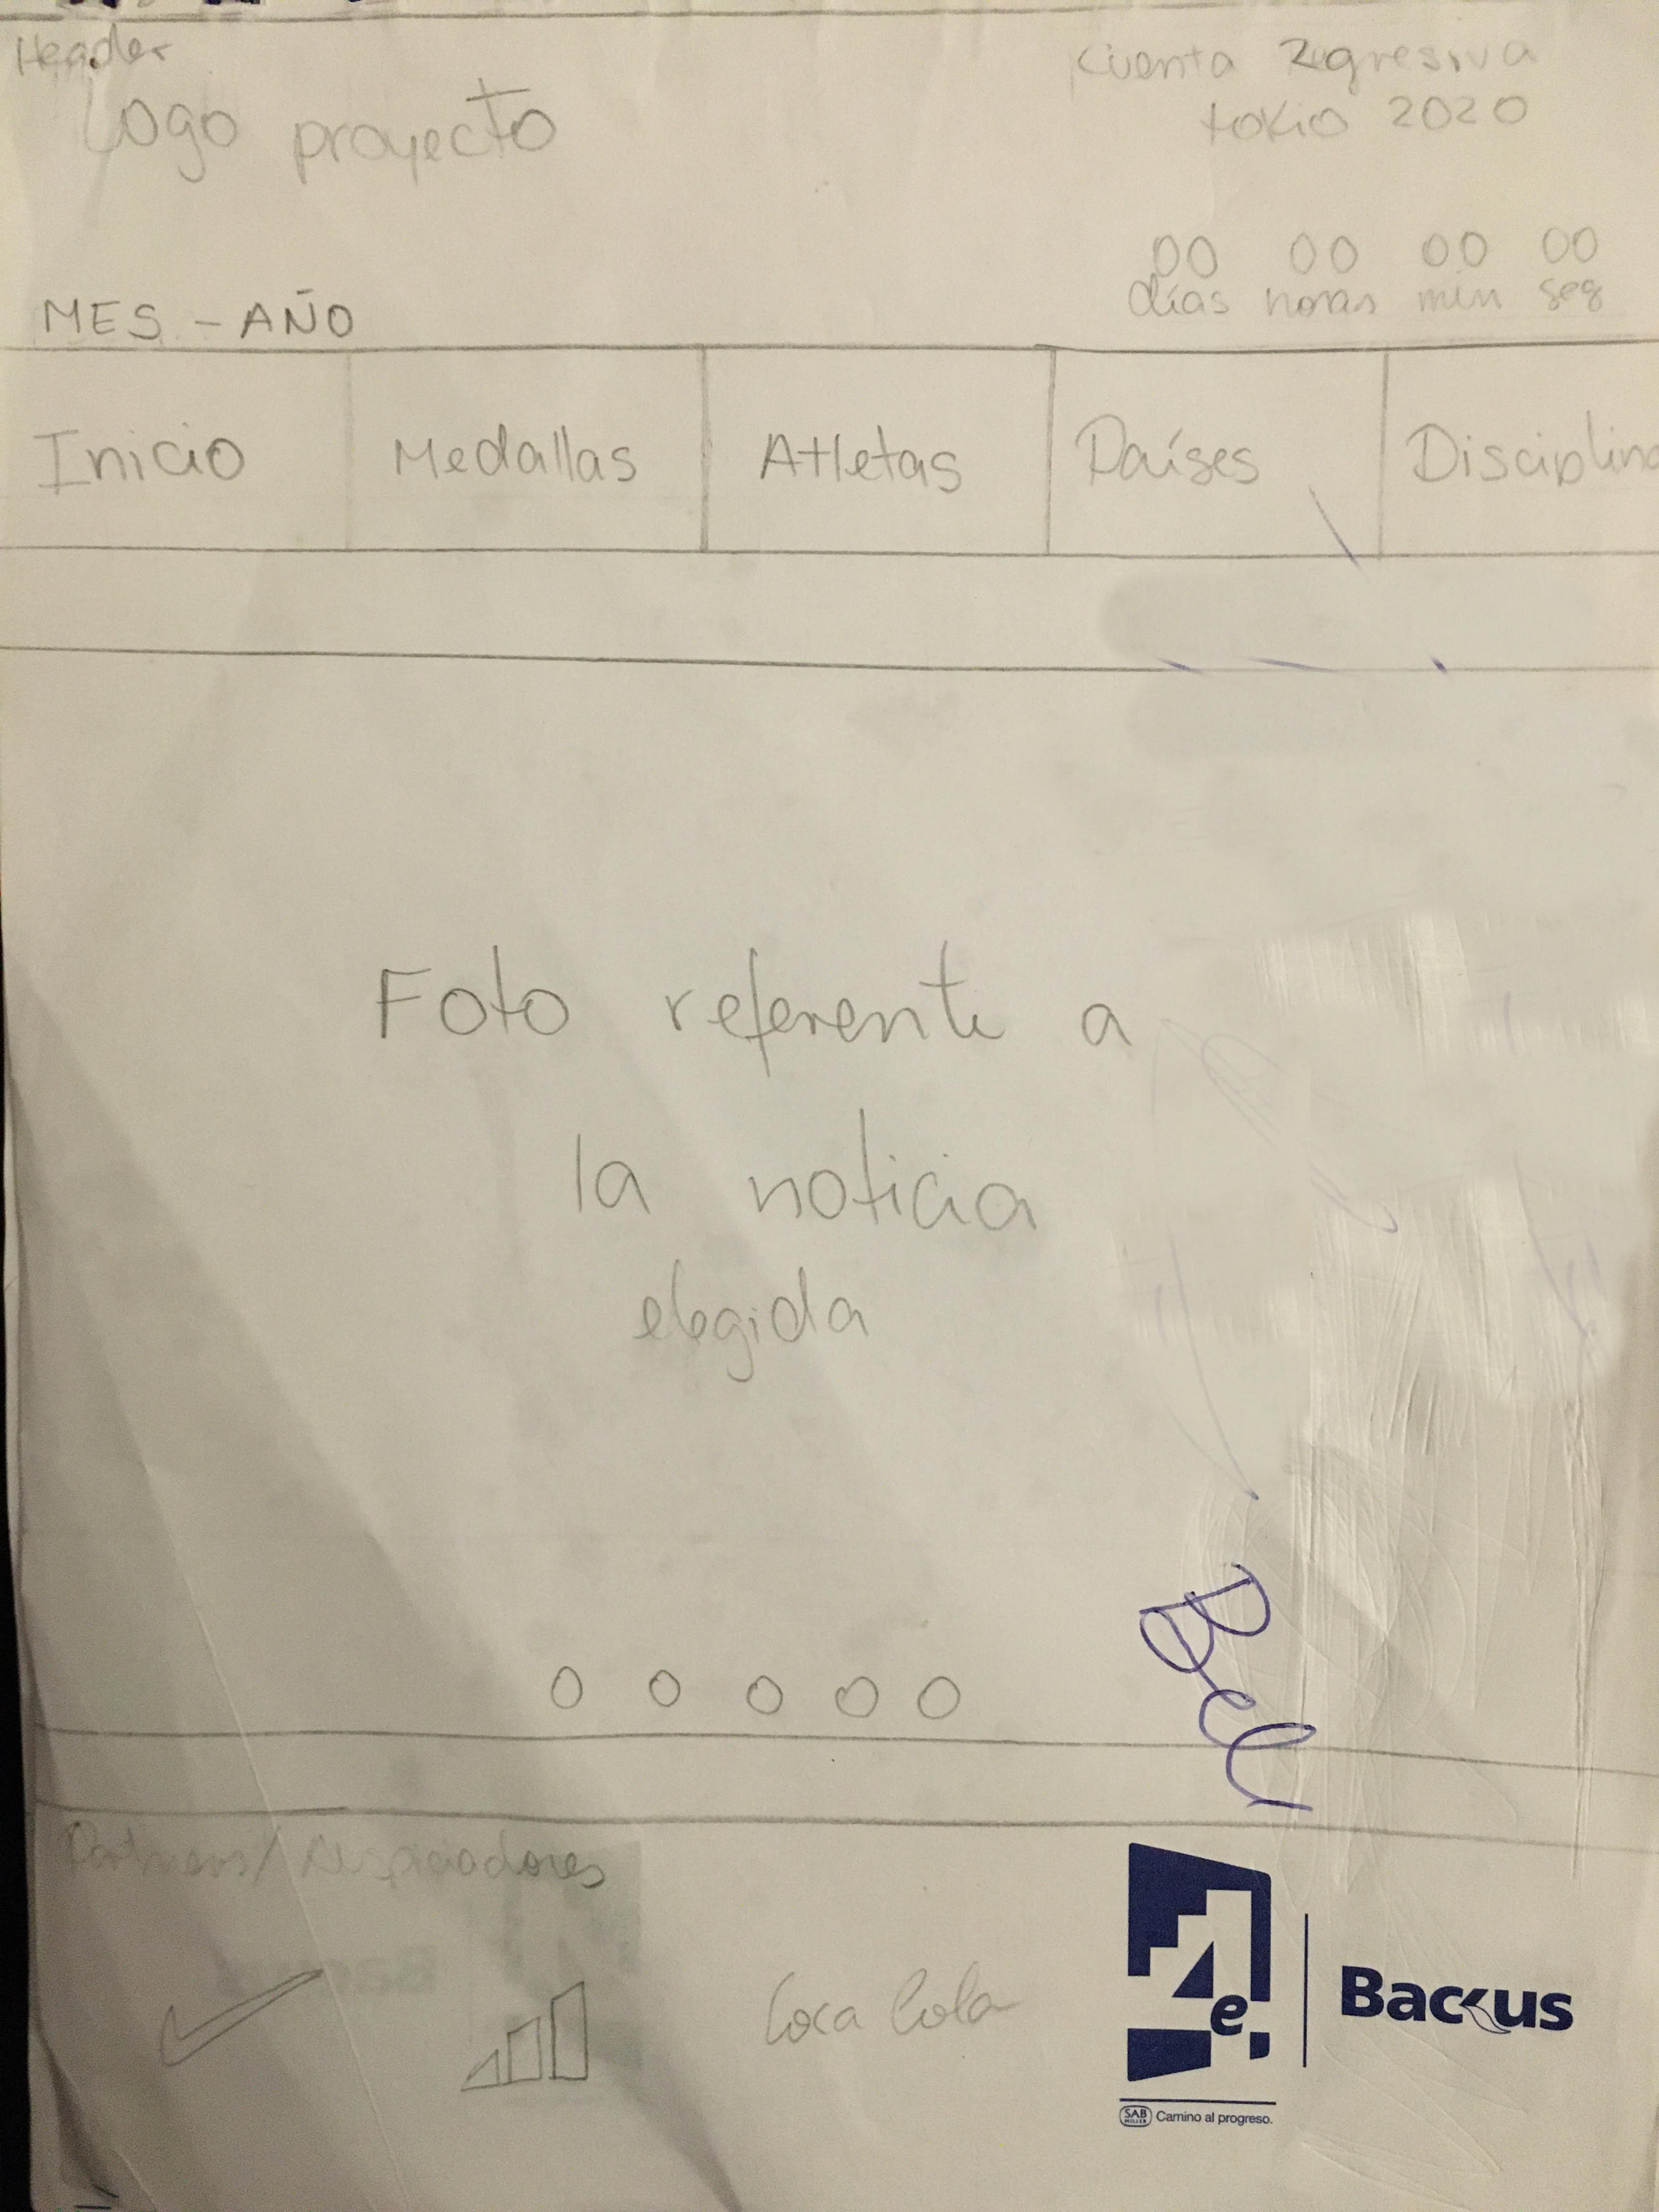 Header
Logo proyecto
Cuenta Regresiva
tokio 2020
00 00 00 00
días horas min seg
MES - AÑO
Inicio Medallas Atletas Países Disciplina
Foto referente a
la noticia
elegida
Partners/Auspiciadores
Coca Cola
e Backus
SAB MILLER Camino al progreso.